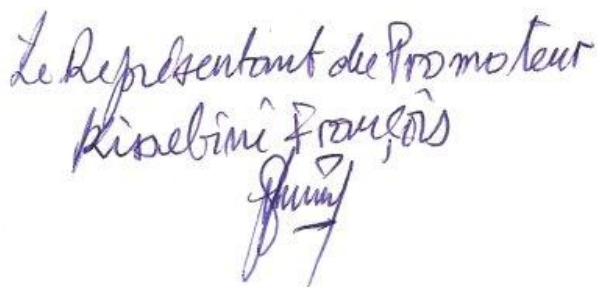 Le Représentant du Promoteur
Kissebini François